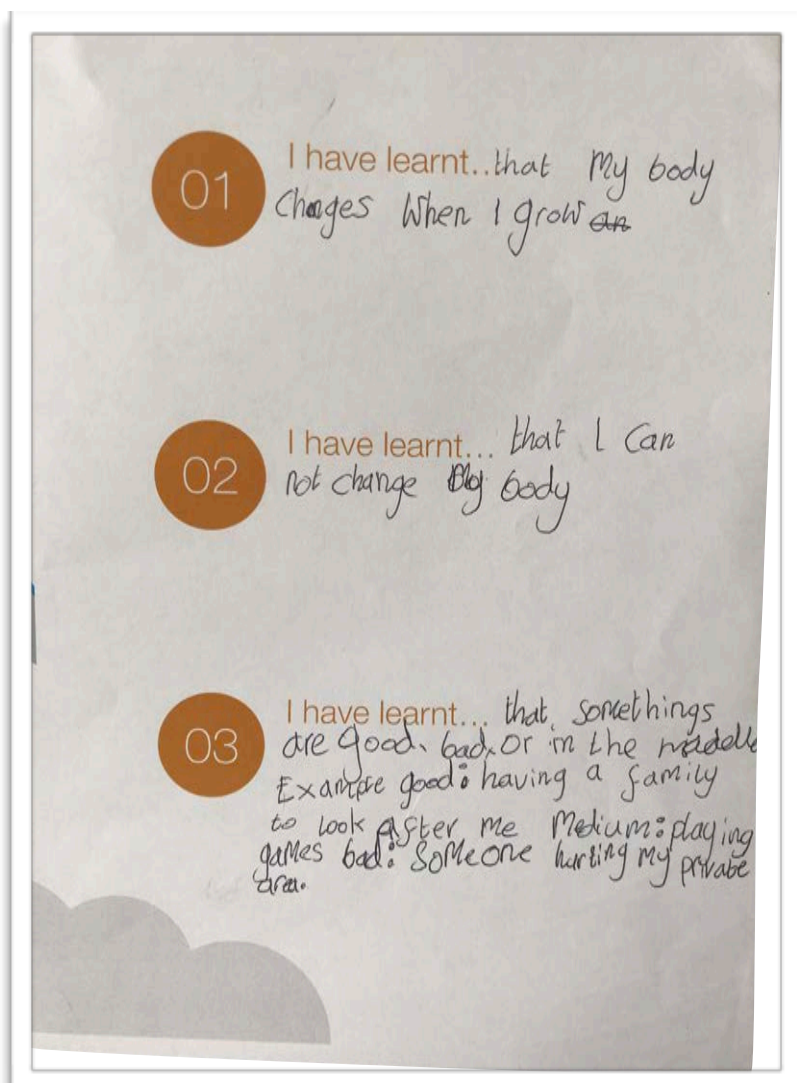 01
I have learnt..that My body
Changes When I grow an
02
I have learnt... that I Can
not change My body
03
I have learnt... that, somethings
are good, bad, or in the madelle
Example good: having a family
to look after me Medium: playing
games bad: SoMeone hurting My private
area.